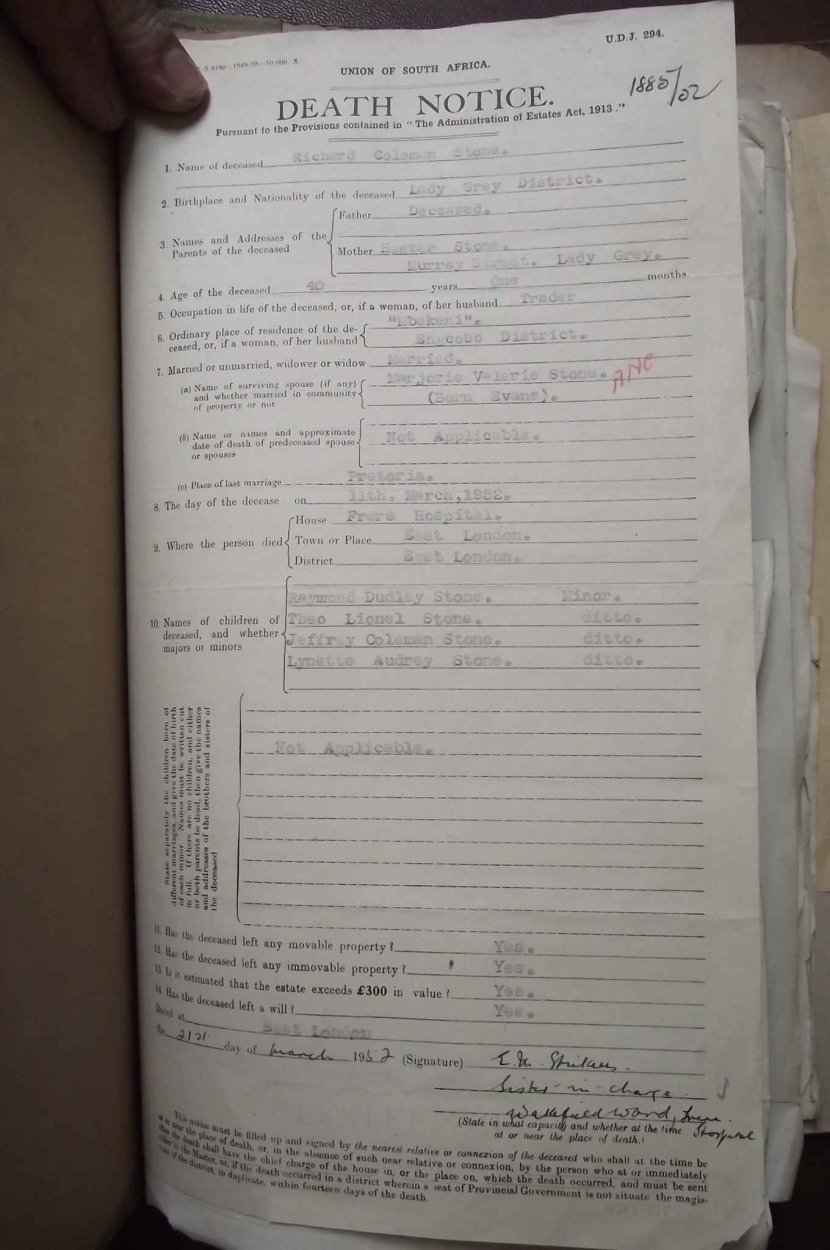 U.D.J. 294.
UNION OF SOUTH AFRICA.
1885/52
DEATH NOTICE.
Pursuant to the Provisions contained in "The Administration of Estates Act, 1913."
1. Name of deceased Richard Coleman Stone.
2. Birthplace and Nationality of the deceased Lady Grey District.
3. Names and Addresses of the Parents of the deceased
Father Deceased.
Mother Hester Stone.
Murray Street. Lady Grey.
4. Age of the deceased 40 years One months.
5. Occupation in life of the deceased, or, if a woman, of her husband Trader
6. Ordinary place of residence of the de-
ceased, or, if a woman, of her husband
"Mbekeni".
Engcobo District.
7. Married or unmarried, widower or widow Married.
(a) Name of surviving spouse (if any)
and whether married in community
of property or not
Marjorie Valerie Stone. ANC
(Born Evans).
(b) Name or names and approximate
date of death of predeceased spouse
or spouses
Not Applicable.
(c) Place of last marriage Pretoria.
8. The day of the decease on 11th. March, 1952.
9. Where the person died
House Frere Hospital.
Town or Place East London.
District East London.
10. Names of children of
deceased, and whether
majors or minors
Raymond Dudley Stone. Minor.
Theo Lionel Stone. ditto.
Jeffrey Coleman Stone. ditto.
Lynette Audrey Stone. ditto.
State separately the children born of
different marriages, and give the date of birth
of each minor. Names must be written out
in full. If there are no children, and either
or both parents be dead, then give the names
and addresses of the brothers and sisters of
the deceased
Not Applicable.
11. Has the deceased left any movable property? Yes.
12. Has the deceased left any immovable property? Yes.
13. Is it estimated that the estate exceeds £300 in value? Yes.
14. Has the deceased left a will? Yes.
Dated at East London
the 21st day of March 1952 (Signature) E.M.
Sister-in-charge
Wakefield Ward, Frere
Hospital
(State in what capacity and whether at the time
at or near the place of death.)
This notice must be filled up and signed by the nearest relative or connexion of the deceased who shall at the time be
at or near the place of death, or, in the absence of such near relative or connexion, by the person who at or immediately
after the death shall have the chief charge of the house in, or the place on, which the death occurred, and must be sent
either to the Master, or, if the death occurred in a district wherein a seat of Provincial Government is not situate the magis-
trate of the district, in duplicate, within fourteen days of the death.